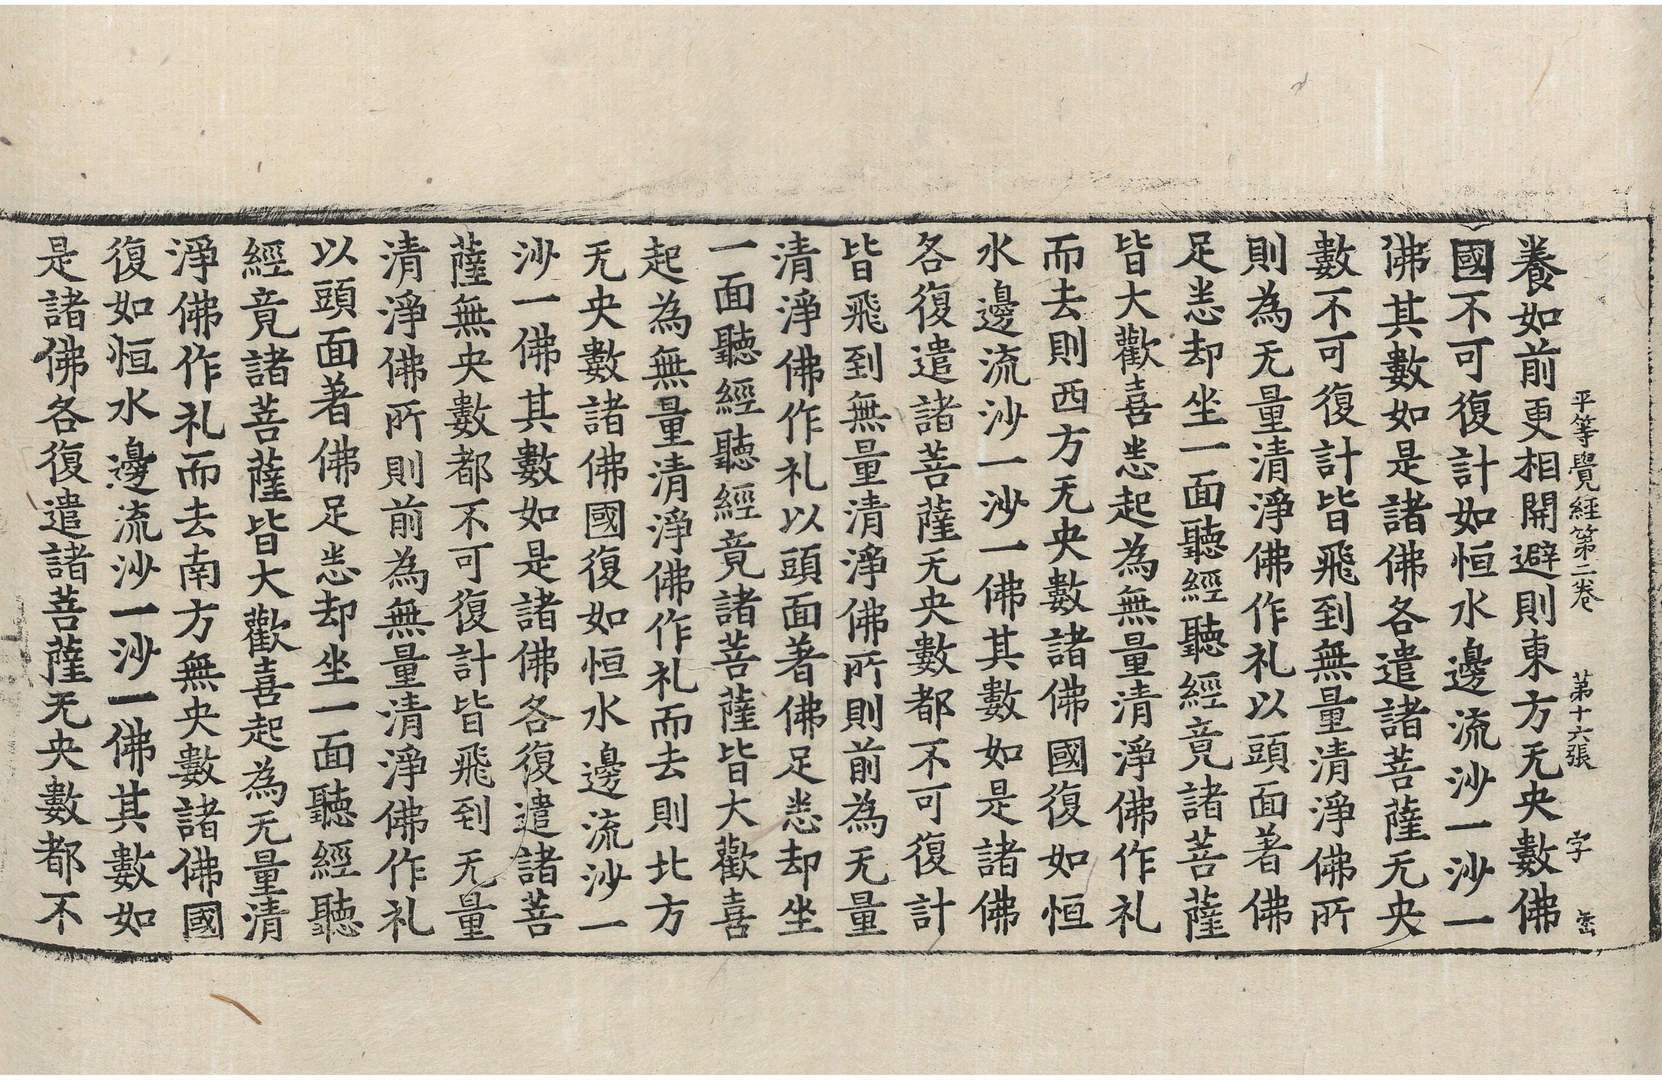 平等覺經第二卷 第十六張 字
養如前更相開避則東方无央數佛
國不可復計如恒水邊流沙一沙一
佛其數如是諸佛各遣諸菩薩无央
數不可復計皆飛到無量清淨佛所
則為无量清淨佛作礼以頭面著佛
足悉却坐一面聽經聽經竟諸菩薩
皆大歡喜悉起為無量清淨佛作礼
而去則西方无央數諸佛國復如恒
水邊流沙一沙一佛其數如是諸佛
各復遣諸菩薩无央數都不可復計
皆飛到無量清淨佛所則前為无量
清淨佛作礼以頭面著佛足悉却坐
一面聽經聽經竟諸菩薩皆大歡喜
起為無量清淨佛作礼而去則北方
无央數諸佛國復如恒水邊流沙一
沙一佛其數如是諸佛各復遣諸菩
薩無央數都不可復計皆飛到无量
清淨佛所則前為無量清淨佛作礼
以頭面著佛足悉却坐一面聽經聽
經竟諸菩薩皆大歡喜起為无量清
淨佛作礼而去南方無央數諸佛國
復如恒水邊流沙一沙一佛其數如
是諸佛各復遣諸菩薩无央數都不